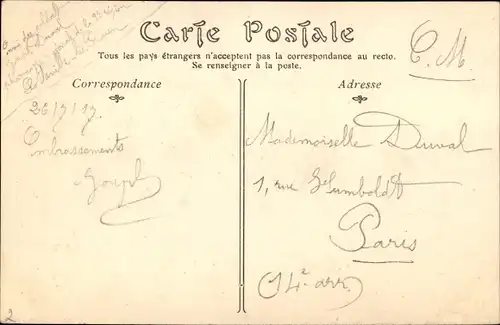 Carte Postale
Tous les pays étrangers n'acceptent pas la correspondance au recto.
Se renseigner à la poste.
C. M.
Correspondance
Adresse
26/7/17.
Embrassements
Mademoiselle Duval
1, rue Humboldt
Paris
(14e arr.)
2